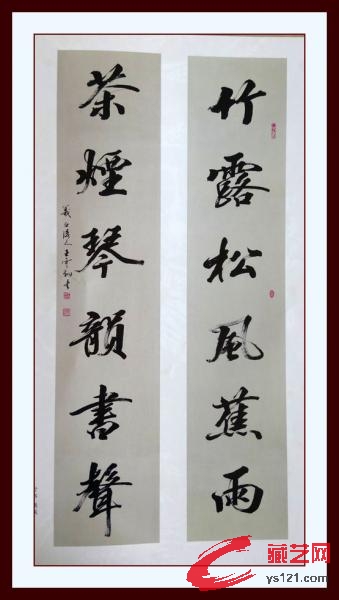 竹露松風蕉雨
茶煙琴韻書聲
藏艺网
ys121.com